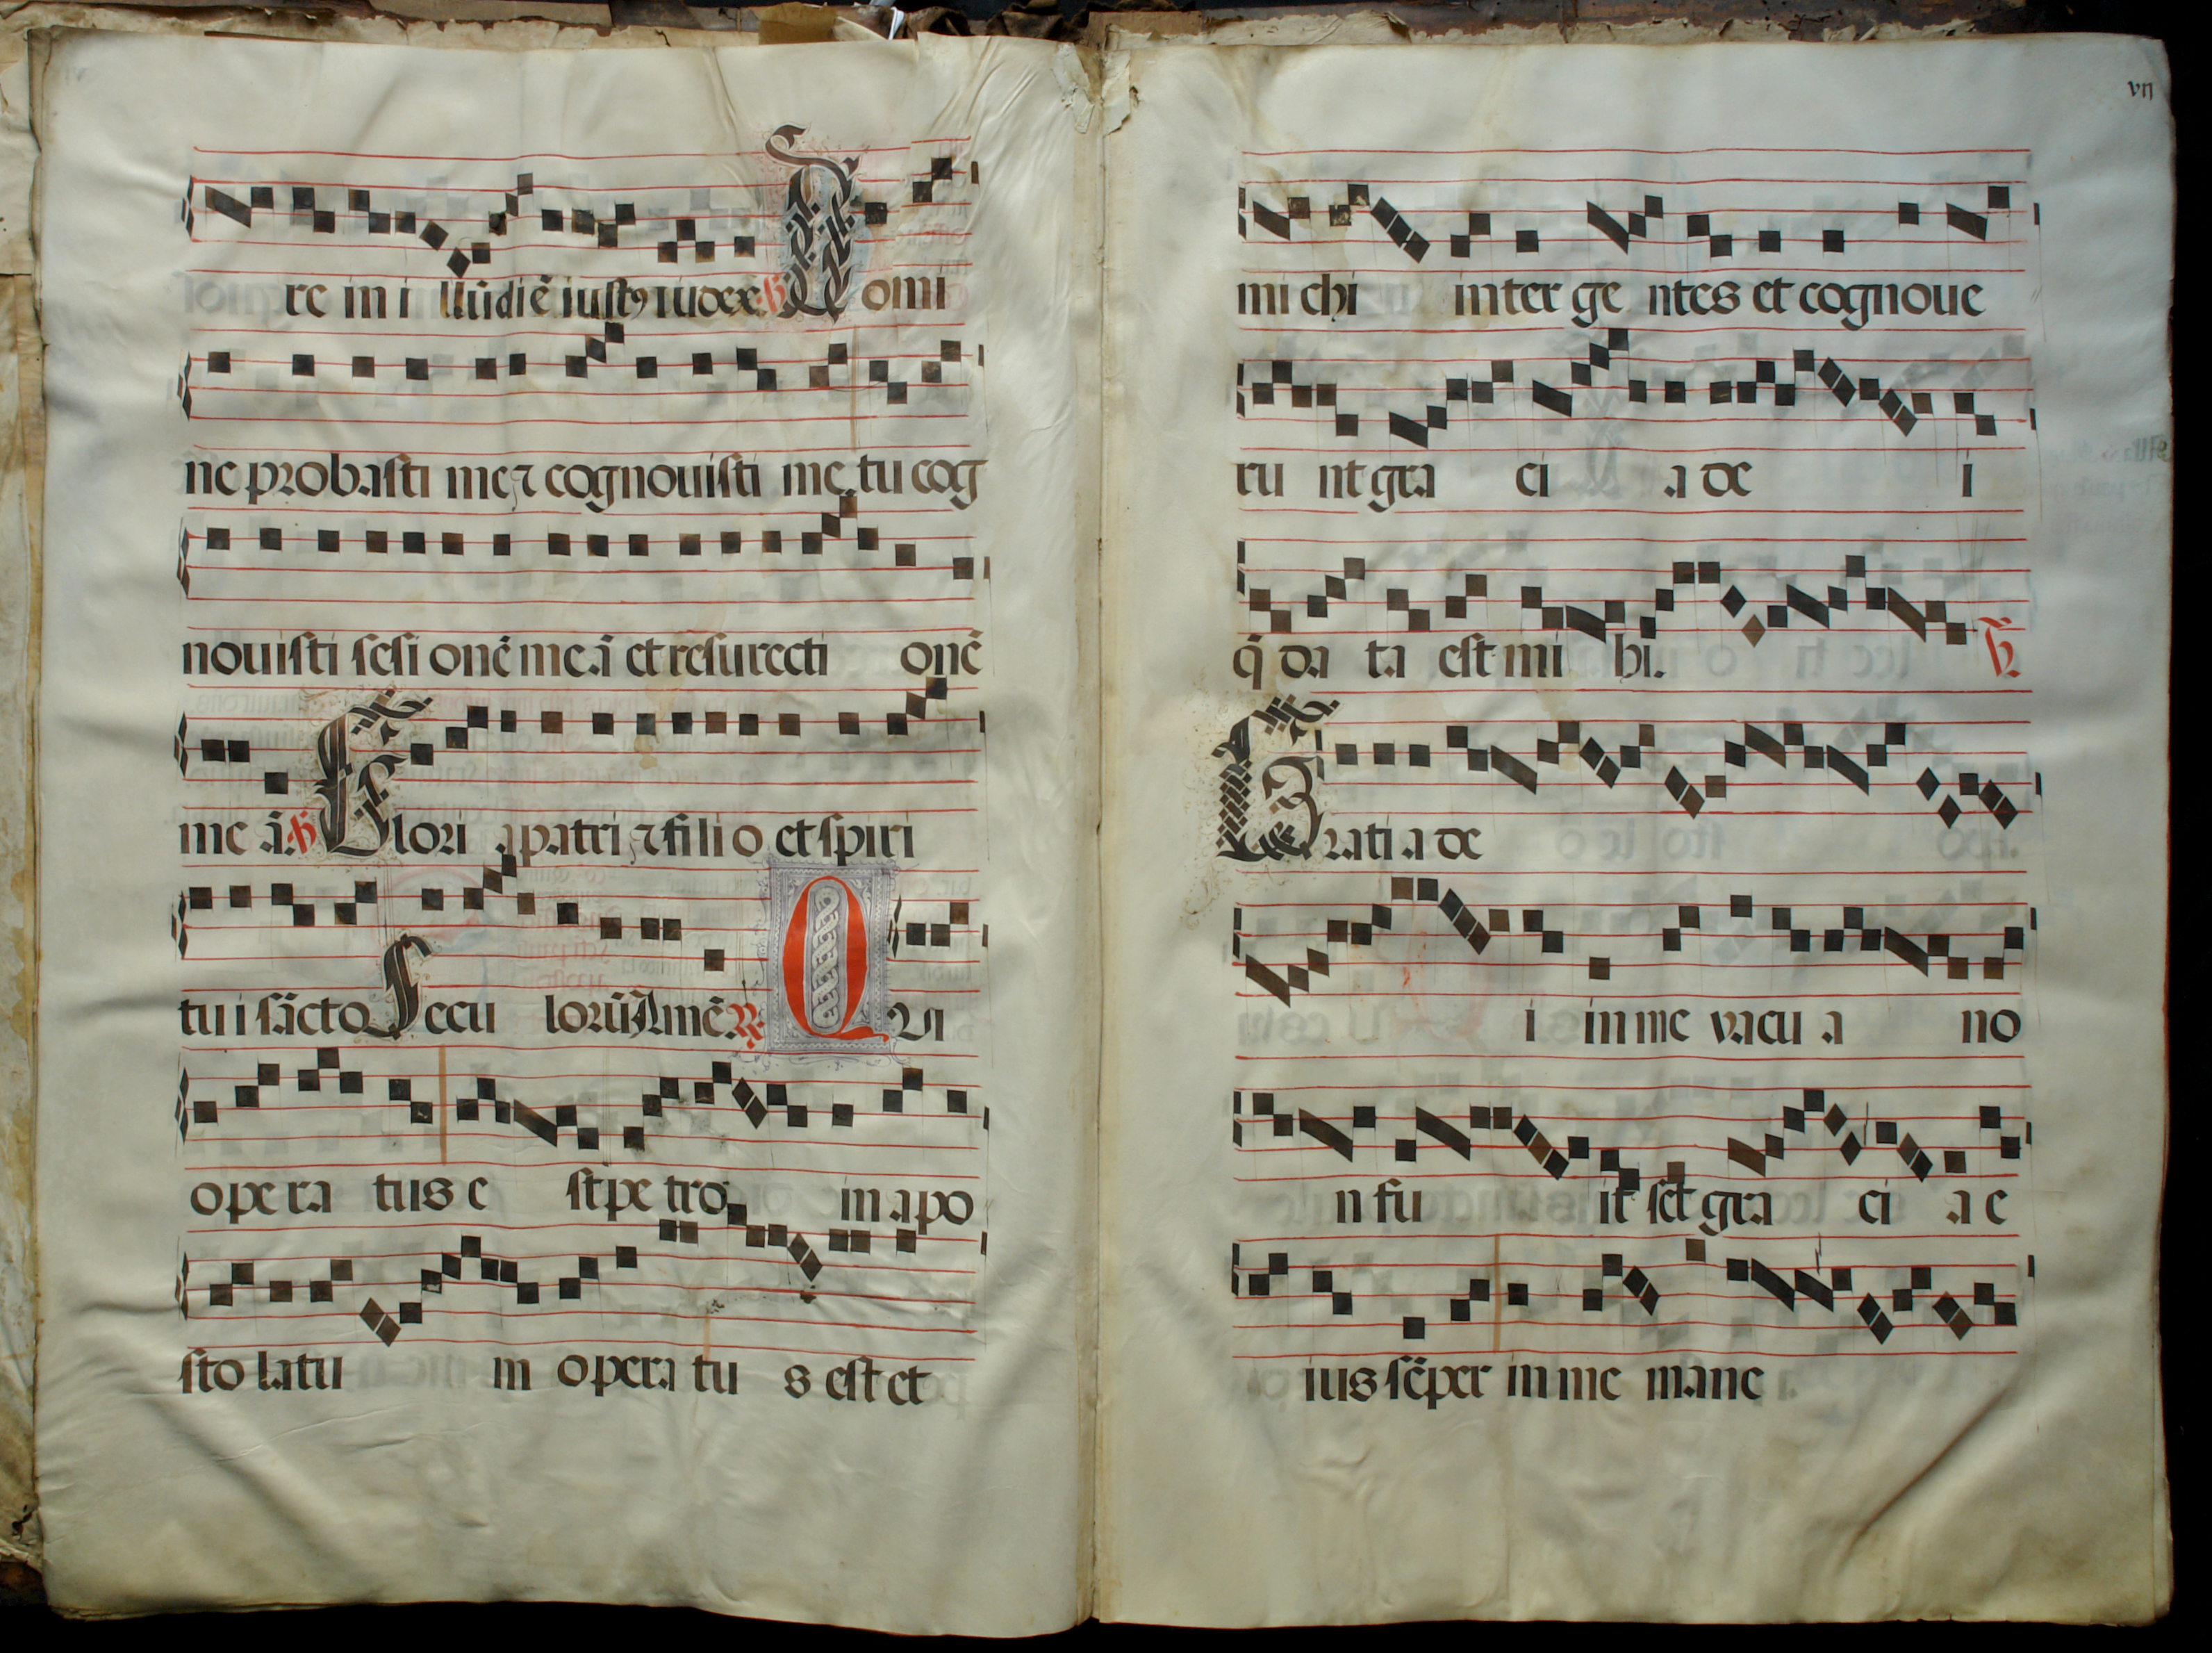 re in i llū diē iustꝯ iudex. ℣ Domi
ne probasti me ⁊ cognouisti me, tu cog
nouisti sesi onē meā et resurecti onē
me ā. ℣ Glori a patri ⁊ fili o et spiri
tu i sācto Secu lorū Amē. ℟. Qui
opera tus e st pe tro in apo
sto latu in opera tu s est et
vii
mi chi inter ge ntes et cognoue
ru nt gra ci a de i
q̄ da ta est mi hi. ℣.
Grati a de
i in me vacu a no
n fu it set gra ci a e
ius sēper in me mane